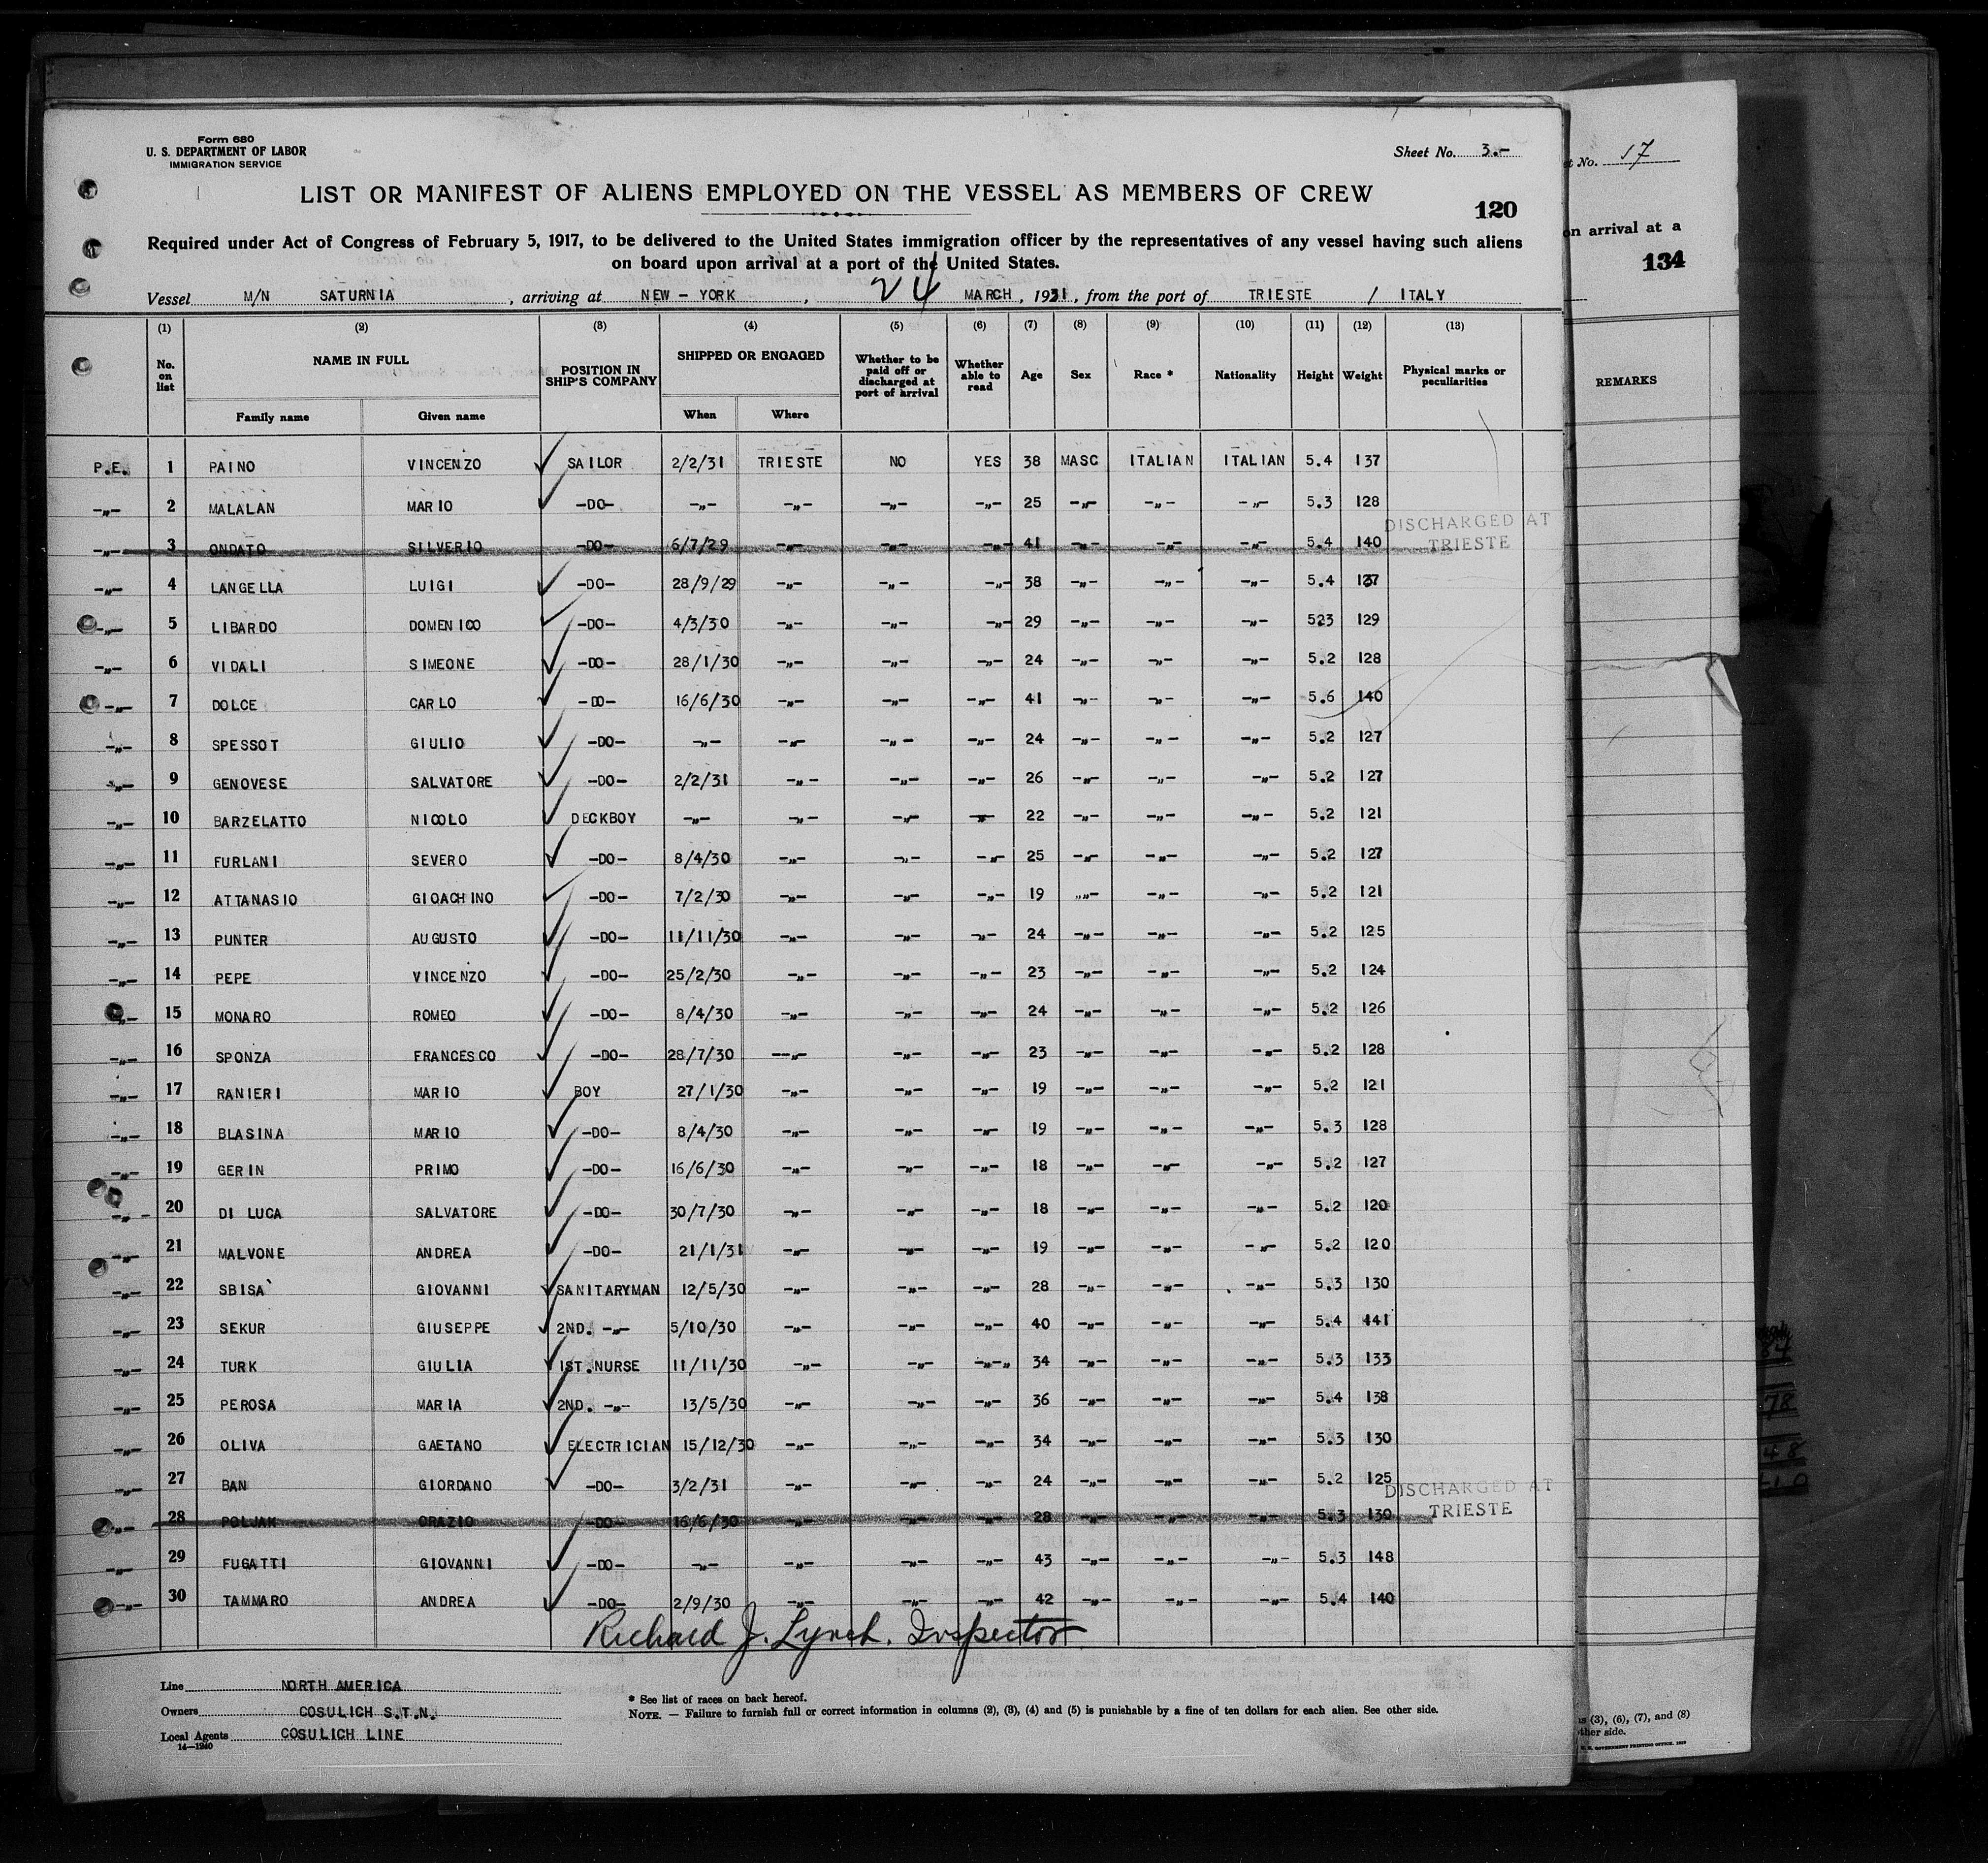 Form 680
U. S. DEPARTMENT OF LABOR
IMMIGRATION SERVICE
Sheet No. 3.-
LIST OR MANIFEST OF ALIENS EMPLOYED ON THE VESSEL AS MEMBERS OF CREW
120
Required under Act of Congress of February 5, 1917, to be delivered to the United States immigration officer by the representatives of any vessel having such aliens
on board upon arrival at a port of the United States.
Vessel M/N SATURNIA, arriving at NEW - YORK, 24 MARCH, 1931, from the port of TRIESTE / ITALY
(1) (2) (3) (4) (5) (6) (7) (8) (9) (10) (11) (12) (13)
No. on list NAME IN FULL Family name Given name POSITION IN SHIP'S COMPANY SHIPPED OR ENGAGED When Where Whether to be paid off or discharged at port of arrival Whether able to read Age Sex Race * Nationality Height Weight Physical marks or peculiarities
P.E. 1 PAINO VINCENZO SAILOR 2/2/31 TRIESTE NO YES 38 MASC ITALIAN ITALIAN 5.4 137
-"- 2 MALALAN MARIO -DO- -"- -"- -"- -"- 25 -"- -"- -"- 5.3 128
-"- 3 ONDATO SILVERIO -DO- 6/7/29 -"- -"- -"- 41 -"- -"- -"- 5.4 140 DISCHARGED AT TRIESTE
-"- 4 LANGELLA LUIGI -DO- 28/9/29 -"- -"- -"- 38 -"- -"- -"- 5.4 137
-"- 5 LIBARDO DOMENICO -DO- 4/3/30 -"- -"- -"- 29 -"- -"- -"- 523 129
-"- 6 VIDALI SIMEONE -DO- 28/1/30 -"- -"- -"- 24 -"- -"- -"- 5.2 128
-"- 7 DOLCE CARLO -DO- 16/6/30 -"- -"- -"- 41 -"- -"- -"- 5.6 140
-"- 8 SPESSOT GIULIO -DO- -"- -"- -"- -"- 24 -"- -"- -"- 5.2 127
-"- 9 GENOVESE SALVATORE -DO- 2/2/31 -"- -"- -"- 26 -"- -"- -"- 5.2 127
-"- 10 BARZELATTO NICOLO DECKBOY -"- -"- -"- -"- 22 -"- -"- -"- 5.2 121
-"- 11 FURLANI SEVERO -DO- 8/4/30 -"- -"- -"- 25 -"- -"- -"- 5.2 127
-"- 12 ATTANASIO GIOACHINO -DO- 7/2/30 -"- -"- -"- 19 -"- -"- -"- 5.2 121
-"- 13 PUNTER AUGUSTO -DO- 11/11/30 -"- -"- -"- 24 -"- -"- -"- 5.2 125
-"- 14 PEPE VINCENZO -DO- 25/2/30 -"- -"- -"- 23 -"- -"- -"- 5.2 124
-"- 15 MONARO ROMEO -DO- 8/4/30 -"- -"- -"- 24 -"- -"- -"- 5.2 126
-"- 16 SPONZA FRANCESCO -DO- 28/7/30 -"- -"- -"- 23 -"- -"- -"- 5.2 128
-"- 17 RANIERI MARIO BOY 27/1/30 -"- -"- -"- 19 -"- -"- -"- 5.2 121
-"- 18 BLASINA MARIO -DO- 8/4/30 -"- -"- -"- 19 -"- -"- -"- 5.3 128
-"- 19 GERIN PRIMO -DO- 16/6/30 -"- -"- -"- 18 -"- -"- -"- 5.2 127
-"- 20 DI LUCA SALVATORE -DO- 30/7/30 -"- -"- -"- 18 -"- -"- -"- 5.2 120
-"- 21 MALVONE ANDREA -DO- 21/1/31 -"- -"- -"- 19 -"- -"- -"- 5.2 120
-"- 22 SBISA` GIOVANNI SANITARYMAN 12/5/30 -"- -"- -"- 28 -"- -"- -"- 5.3 130
-"- 23 SEKUR GIUSEPPE 2ND. -"- 5/10/30 -"- -"- -"- 40 -"- -"- -"- 5.4 141
-"- 24 TURK GIULIA 1ST.NURSE 11/11/30 -"- -"- -"- 34 -"- -"- -"- 5.3 133
-"- 25 PEROSA MARIA 2ND. -"- 13/5/30 -"- -"- -"- 36 -"- -"- -"- 5.4 138
-"- 26 OLIVA GAETANO ELECTRICIAN 15/12/30 -"- -"- -"- 34 -"- -"- -"- 5.3 130
-"- 27 BAN GIORDANO -DO- 3/2/31 -"- -"- -"- 24 -"- -"- -"- 5.2 125
-"- 28 POLJAK ORAZIO -DO- 16/6/30 -"- -"- -"- 28 -"- -"- -"- 5.3 130 DISCHARGED AT TRIESTE
-"- 29 FUGATTI GIOVANNI -DO- -"- -"- -"- -"- 43 -"- -"- -"- 5.3 148
-"- 30 TAMMARO ANDREA -DO- 2/9/30 -"- -"- -"- 42 -"- -"- -"- 5.4 140
Richard J. Lynch, Inspector
Line NORTH AMERICA
Owners COSULICH S.T.N.
Local Agents COSULICH LINE
14-1240
* See list of races on back hereof.
NOTE. — Failure to furnish full or correct information in columns (2), (3), (4) and (5) is punishable by a fine of ten dollars for each alien. See other side.
No. 17
on arrival at a
134
REMARKS
(3), (6), (7), and (8)
other side.
GOVERNMENT PRINTING OFFICE